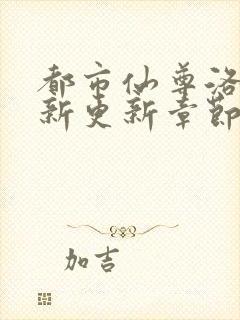 都市仙尊洛
新更新章节
加吉